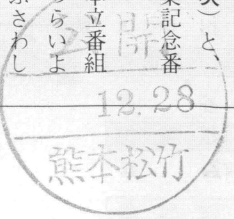 次）と、
業記念番
本立番組
つらいよ
ふさわし
開
12.28
熊本松竹